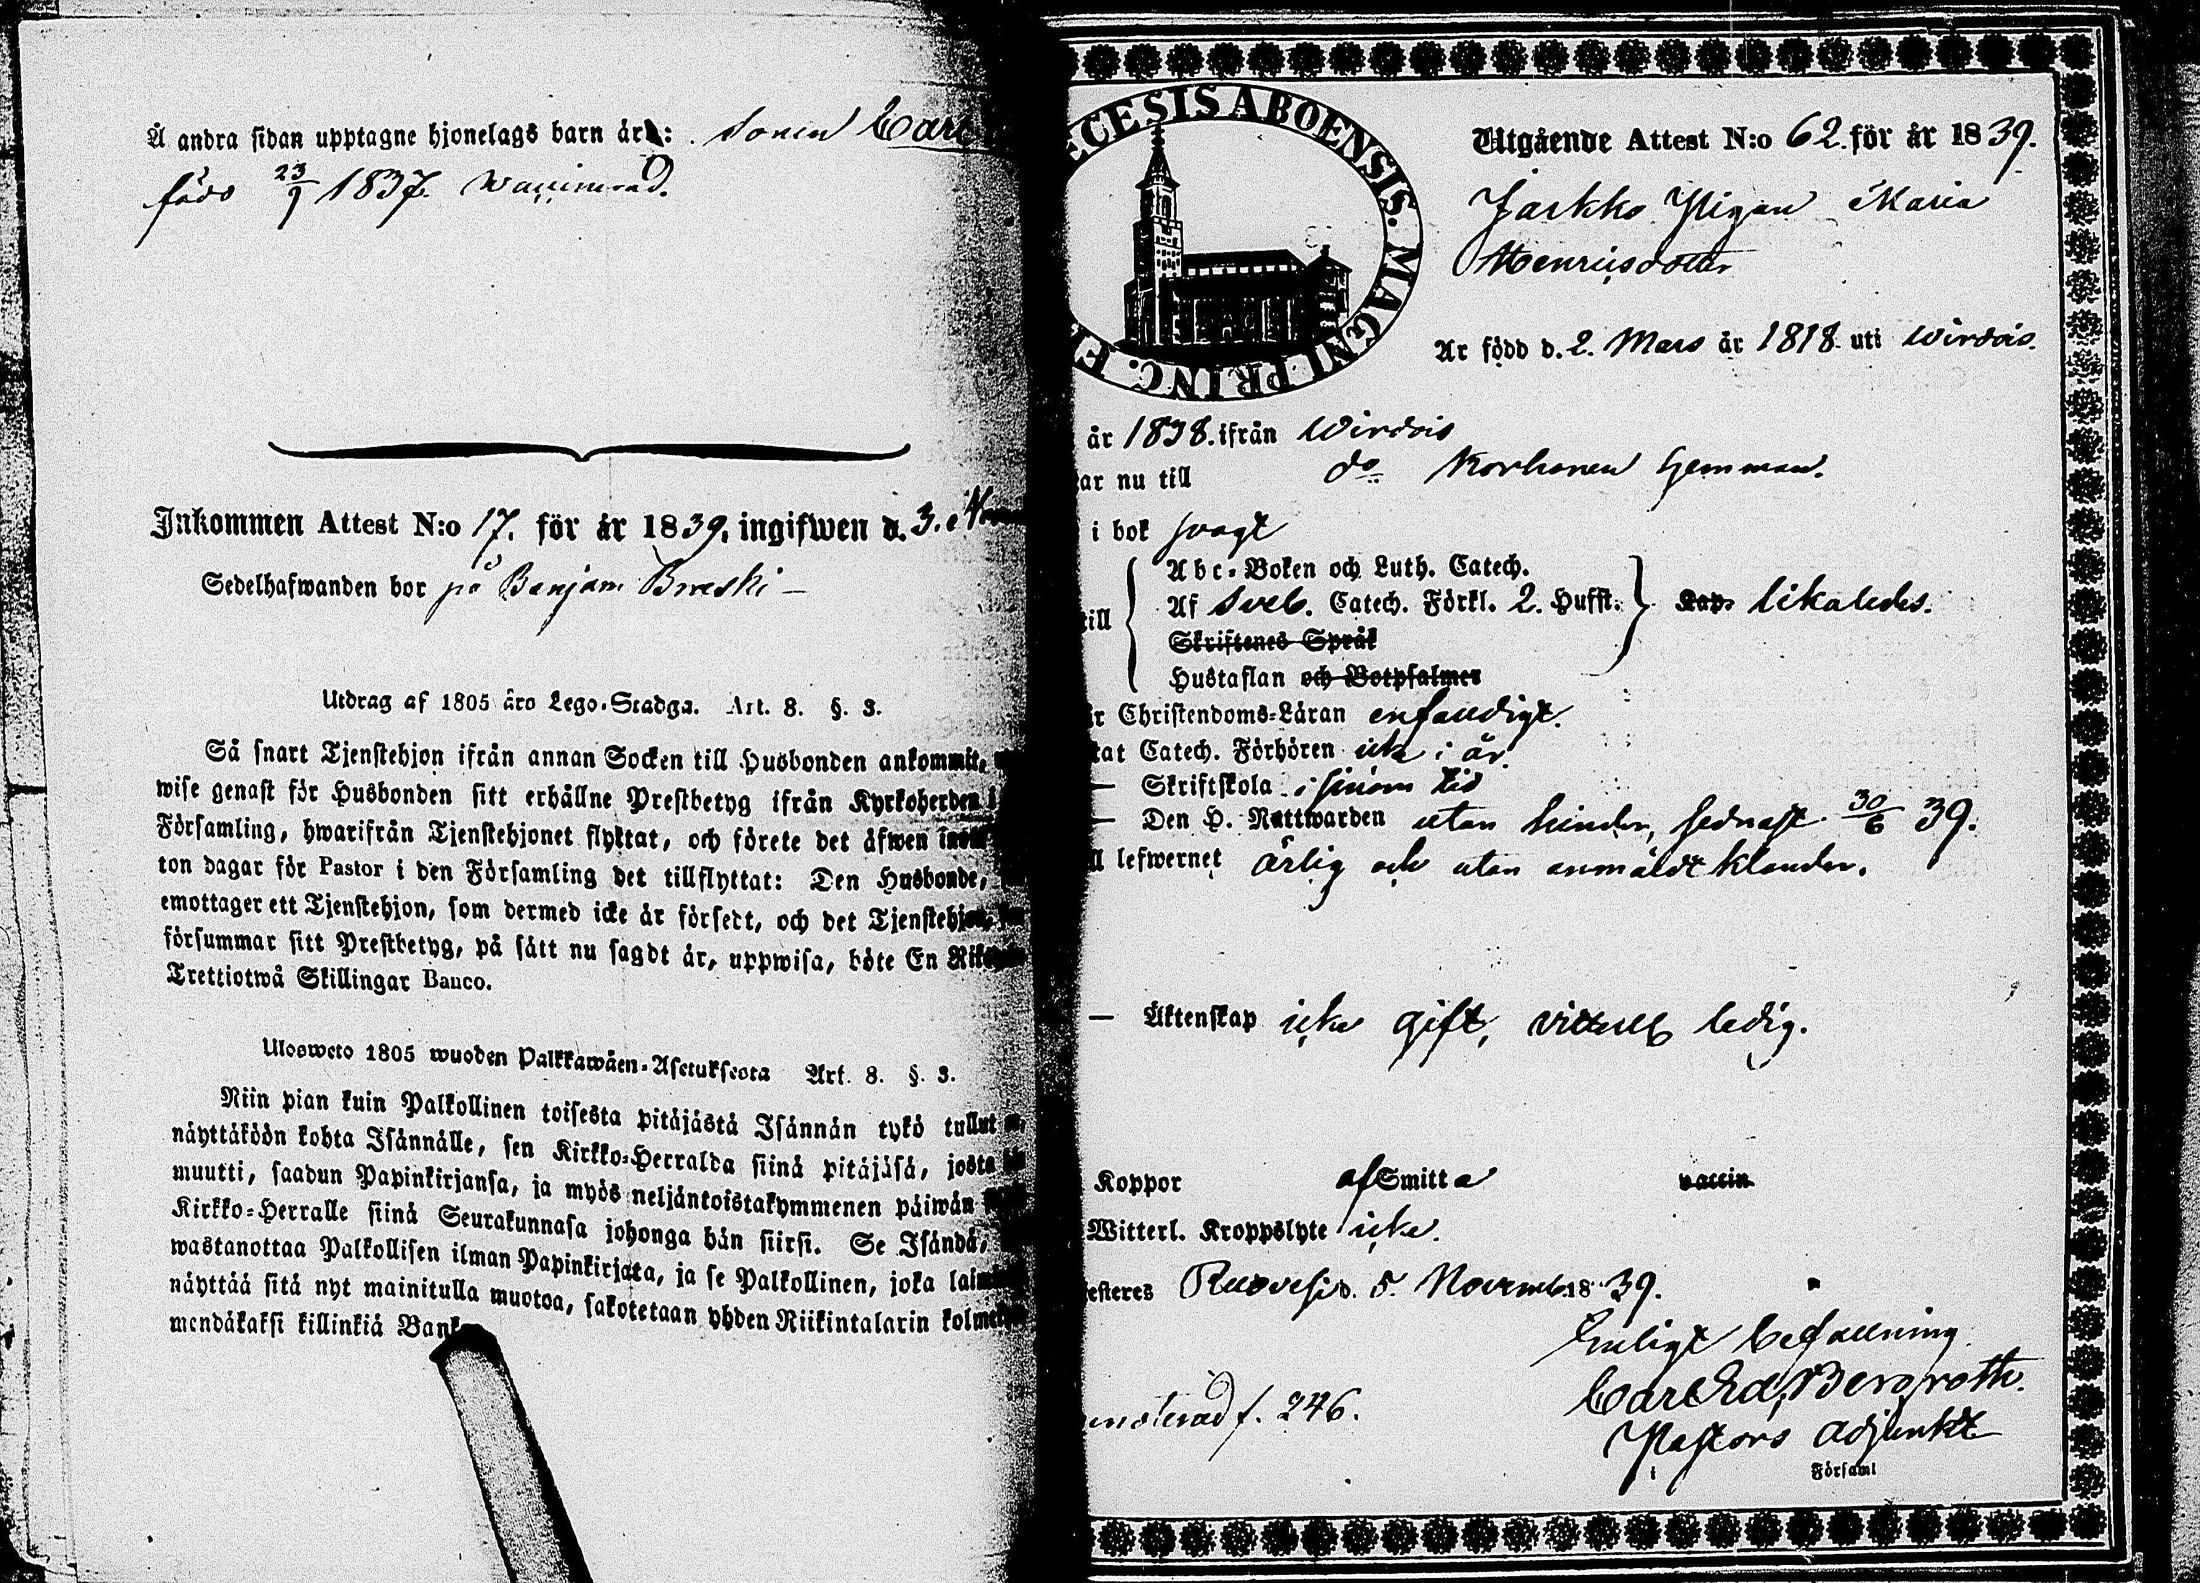 Å andra sidan upptagne hjonelags barn är: sonen Carl
född 23/9 1837. waccinerad.
Inkommen Attest N:o 17. för år 1839, ingifwen d. 3.
Sedelhafwanden bor på Benjam
Utdrag af 1805 års Lego-Stadga. Art. 8. §. 3.
Så snart Tjenstehjon ifrån annan Socken till Husbonden ankommit,
wise genast för Husbonden sitt erhållne Prestbetyg ifrån Kyrkoherden i
Församling, hwarifrån Tjenstehjonet flyttat, och förete det äfwen inom
ton dagar för Pastor i den Församling det tillflyttat: Den Husbonde,
emottager ett Tjenstehjon, som dermed icke är försedt, och det Tjenstehjon,
försummar sitt Prestbetyg, på sätt nu sagdt är, uppwisa, böte En
Trettiotwå Skillingar Banco.
Ulosweto 1805 wuoden Palkkawäen-Asetuksesta Art. 8. §. 3.
Niin pian kuin Palkollinen toisesta pitäjästä Isännän tykö tullut
näyttäköön kohta Isännälle, sen Kirkko-Herralda siinä pitäjäsä, josta
muutti, saadun Papinkirjansa, ja myös neljäntoistakymmenen päiwän
Kirkko-Herralle siinä Seurakunnasa johonga hän siirsi. Se Isändä,
wastanottaa Palkollisen ilman Papinkirjata, ja se Palkollinen, joka
näyttää sitä nyt mainitulla muotoa, sakotetaan yhden Riikintalarin
mendäkaksi killinkiä
ECESIS ABOENSIS. MAGNI PRINC.
Utgående Attest N:o 62. för år 1839.
Jarkko Pigan Maria
Henricsdotter
Är född d. 2. Mars år 1818. uti Wirdois.
år 1838. ifrån Wirdois
ar nu till do Korhonen hemman.
i bok svagt
till
Abc-Boken och Luth. Catech.
Af Sveb. Catech. Förkl. 2. Hufst. Kap. likaledes.
Skriftenes Språk
Hustaflan och Botpsalmer
Christendoms-Läran enfaldigt.
tat Catech. Förhören icke i år.
— Skriftskola i sinom tid
— Den H. Nattwarden utan hinder, sednast 30/6 39.
ll lefwernet ärlig och utan anmäldt klander.
— Äktenskap icke gift, vitterl. ledig.
Koppor af Smitta vaccin
Witterl. Kroppslyte icke.
esteres Ruovesi d. 5. Novemb. 1839.
Enligt befallning
Carl Ed. Bergroth.
f. 246.
Pastors Adjunkt
Församl